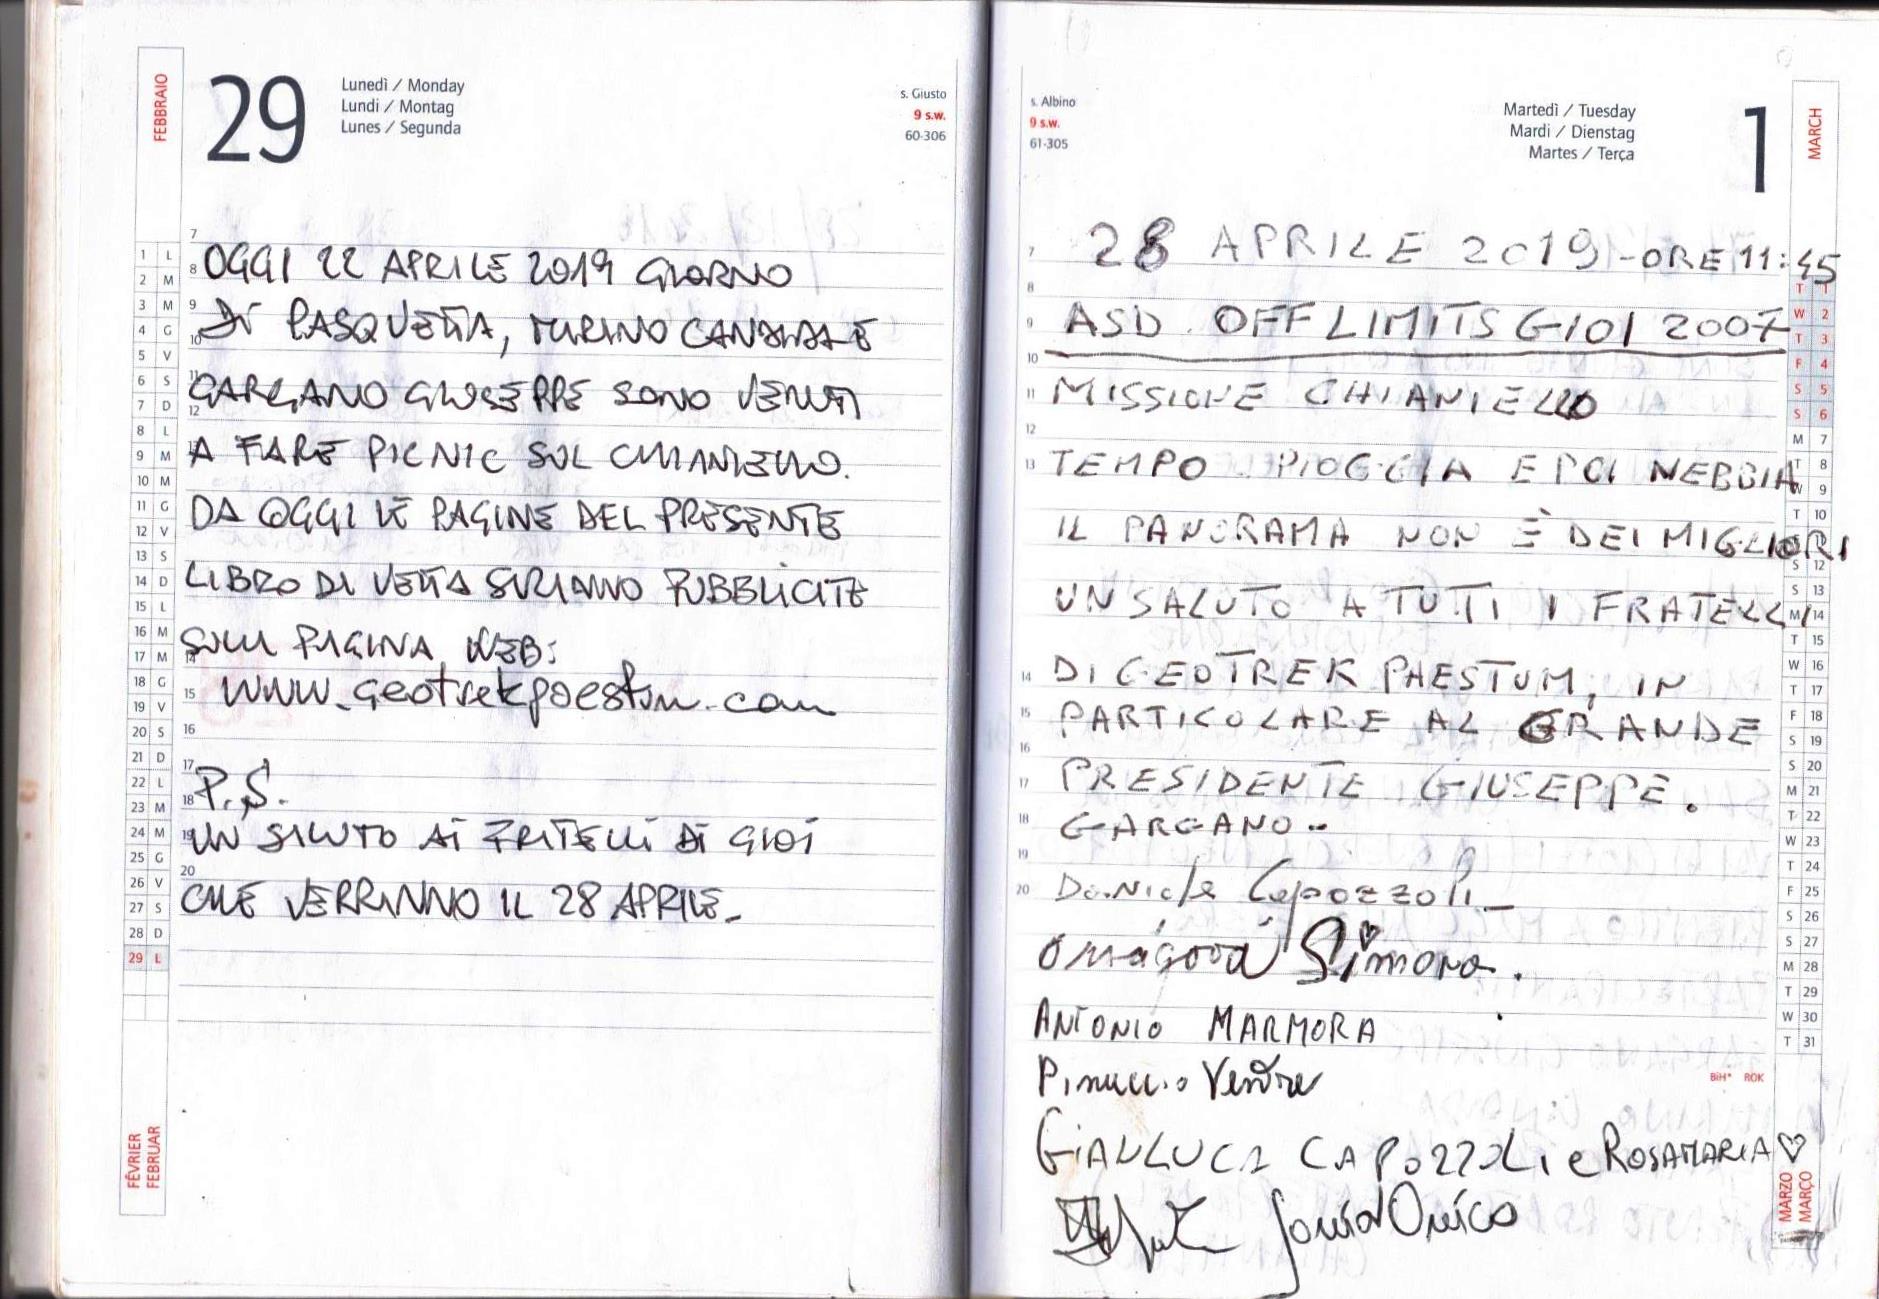 FEBBRAIO
29
Lunedì / Monday
Lundi / Montag
Lunes / Segunda
s. Giusto
9 s.w.
60-306
7
8
9
10
11
12
14
15
16
17
18
19
20
OGGI 22 APRILE 2019 GIORNO
DI PASQUETTA, TURINO CANDIDA E
GARGANO GIUSEPPE SONO VENUTI
A FARE PICNIC SUL CHIANIELLO.
DA OGGI LE PAGINE DEL PRESENTE
LIBRO DI VETTA SARANNO PUBBLICATE
SULLA PAGINA WEB:
www.geotrekpaestum.com
P.S.
UN SALUTO AI FRATELLI DI GIOI
CHE VERRANNO IL 28 APRILE.
1 L
2 M
3 M
4 G
5 V
6 S
7 D
8 L
9 M
10 M
11 G
12 V
13 S
14 D
15 L
16 M
17 M
18 G
19 V
20 S
21 D
22 L
23 M
24 M
25 G
26 V
27 S
28 D
29 L
FÉVRIER
FEBRUAR
s. Albino
9 s.w.
61-305
Martedì / Tuesday
Mardi / Dienstag
Martes / Terça
1
MARCH
7
8
9
10
11
12
13
14
15
16
17
18
19
20
28 APRILE 2019 - ORE 11:45
ASD. OFF LIMITS GIOI 2007
MISSIONE CHIANIELLO
TEMPO PIOGGIA E POI NEBBIA
IL PANORAMA NON È DEI MIGLIORI
UN SALUTO A TUTTI I FRATELLI
DI GEOTREK PAESTUM, IN
PARTICOLARE AL GRANDE
PRESIDENTE GIUSEPPE.
GARGANO..
Daniele Capozzoli
Simona.
ANTONIO MARMORA
Pinuccio
GIANLUCA CAPOZZOLI e ROSAMARIA ♡
T 1
W 2
T 3
F 4
S 5
S 6
M 7
T 8
W 9
T 10
S 12
S 13
M 14
T 15
W 16
T 17
F 18
S 19
S 20
M 21
T 22
W 23
T 24
F 25
S 26
S 27
M 28
T 29
W 30
T 31
BiH* ROK
MARZO
MARÇO